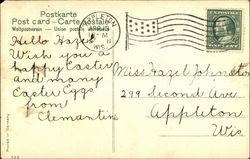 Postkarte
Post card - Carte postale
Weltpostverein - Union postale universelle
APPLETON
WIS.
Hello Hazel
Wish you a
happy Easter
and many
Easter Eggs
from
Clemantine
Miss Hazel Johnston
299 Second Ave
Appleton
Wis